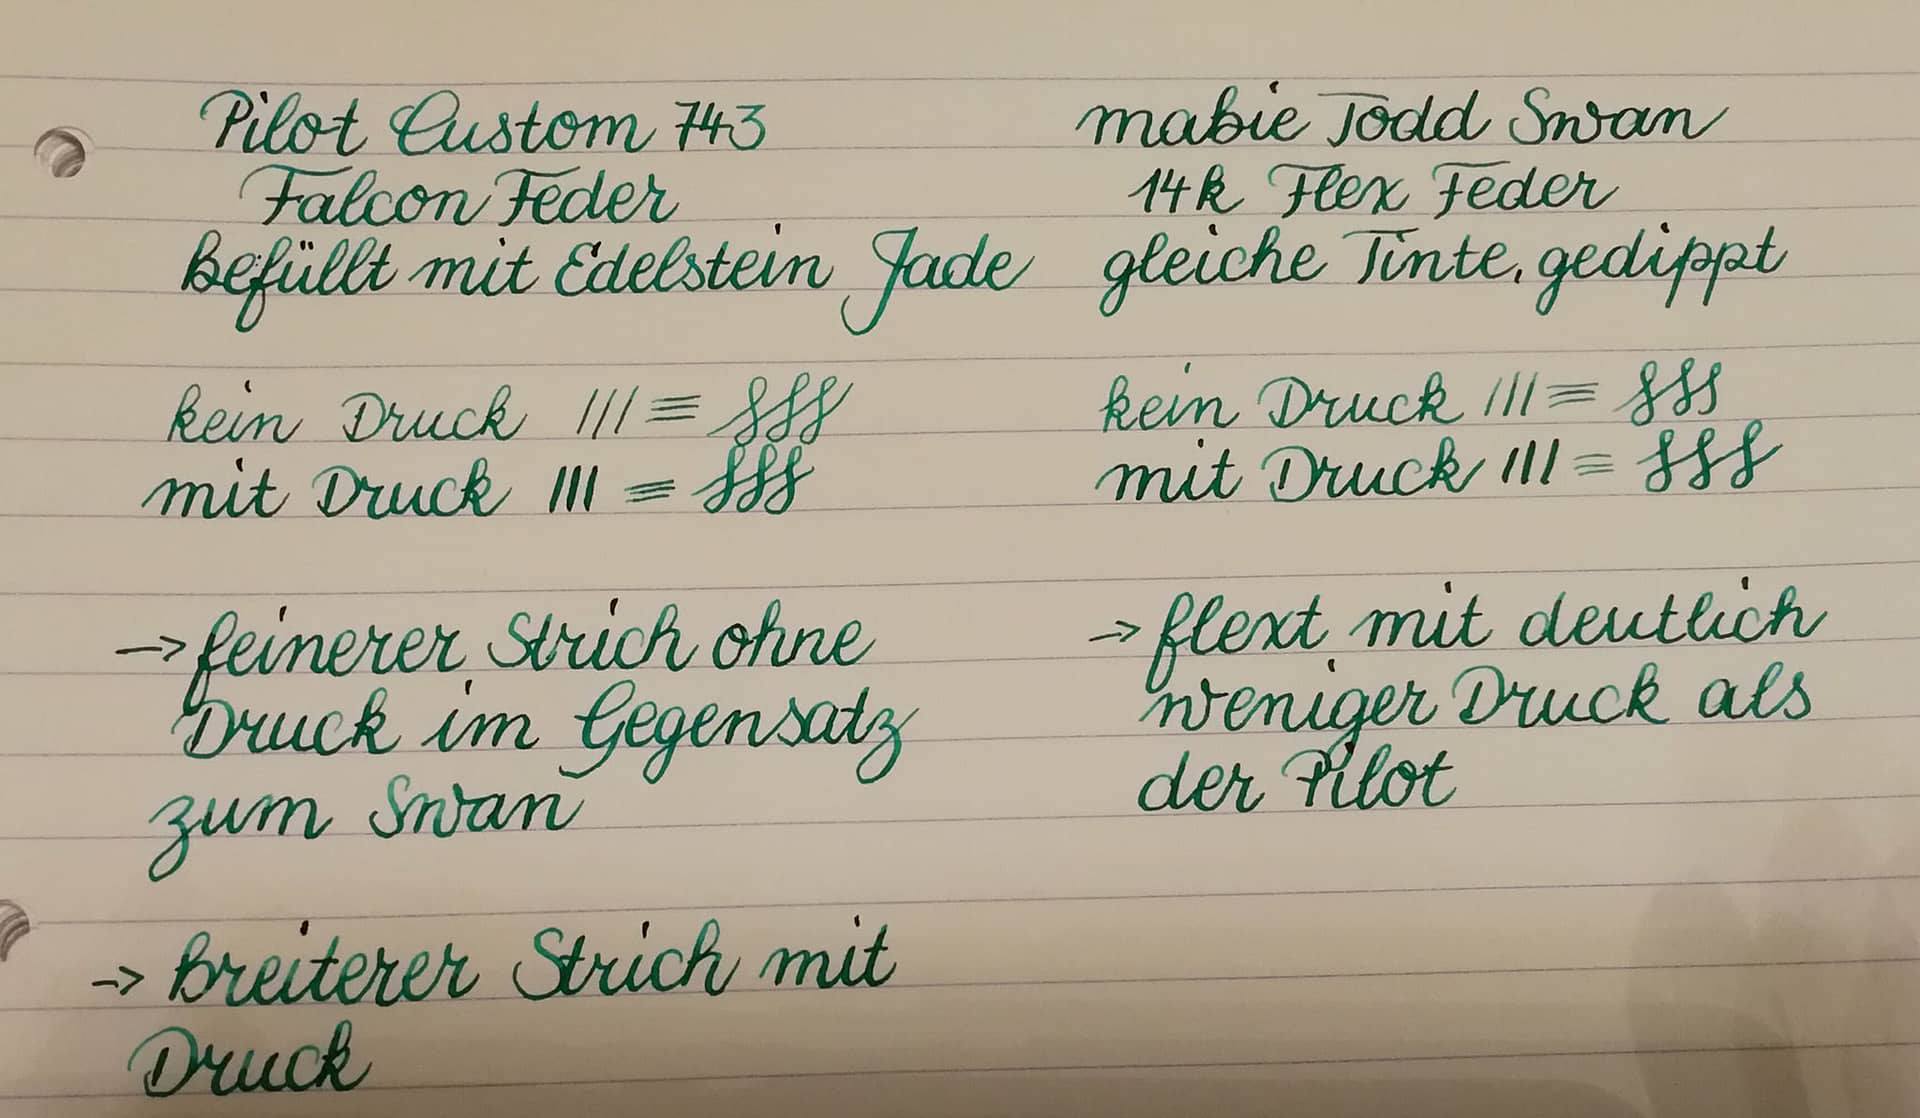 Pilot Custom 743
Falcon Feder
Befüllt mit Edelstein Jade
kein Druck /// ≡ fff
mit Druck /// ≡ fff
→ feinerer Strich ohne
Druck im Gegensatz
zum Swan
→ Breiterer Strich mit
Druck
mabie Todd Swan
14k Flex Feder
gleiche Tinte, gedippt
kein Druck /// ≡ fff
mit Druck /// ≡ fff
→ flext mit deutlich
weniger Druck als
der Pilot